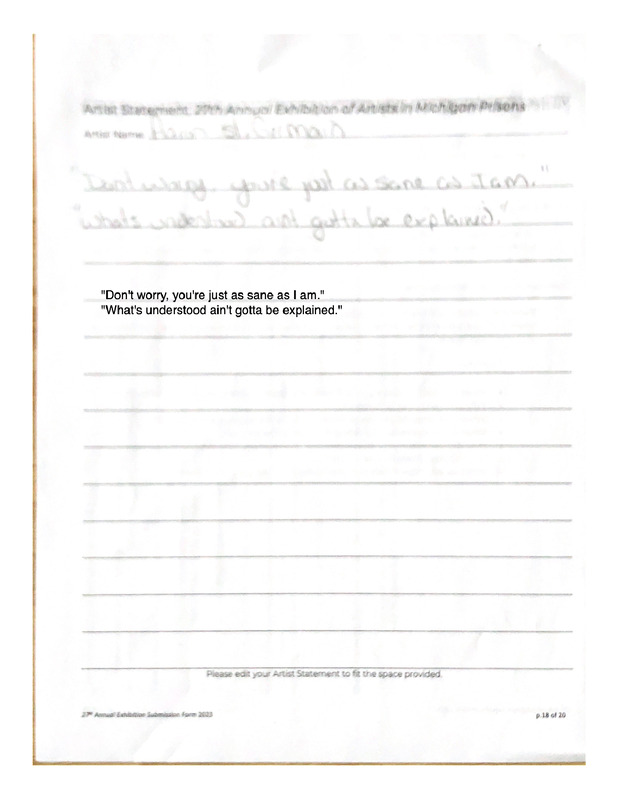 Artist Statement, 27th Annual Exhibition of Artists in Michigan Prisons
Artist Name St. Germain
"Dont worry, you're just as sane as I am."
"Whats understood aint gotta be explained."
"Don't worry, you're just as sane as I am."
"What's understood ain't gotta be explained."
Please edit your Artist Statement to fit the space provided.
27th Annual Exhibition Submission Form 2023
p.18 of 20